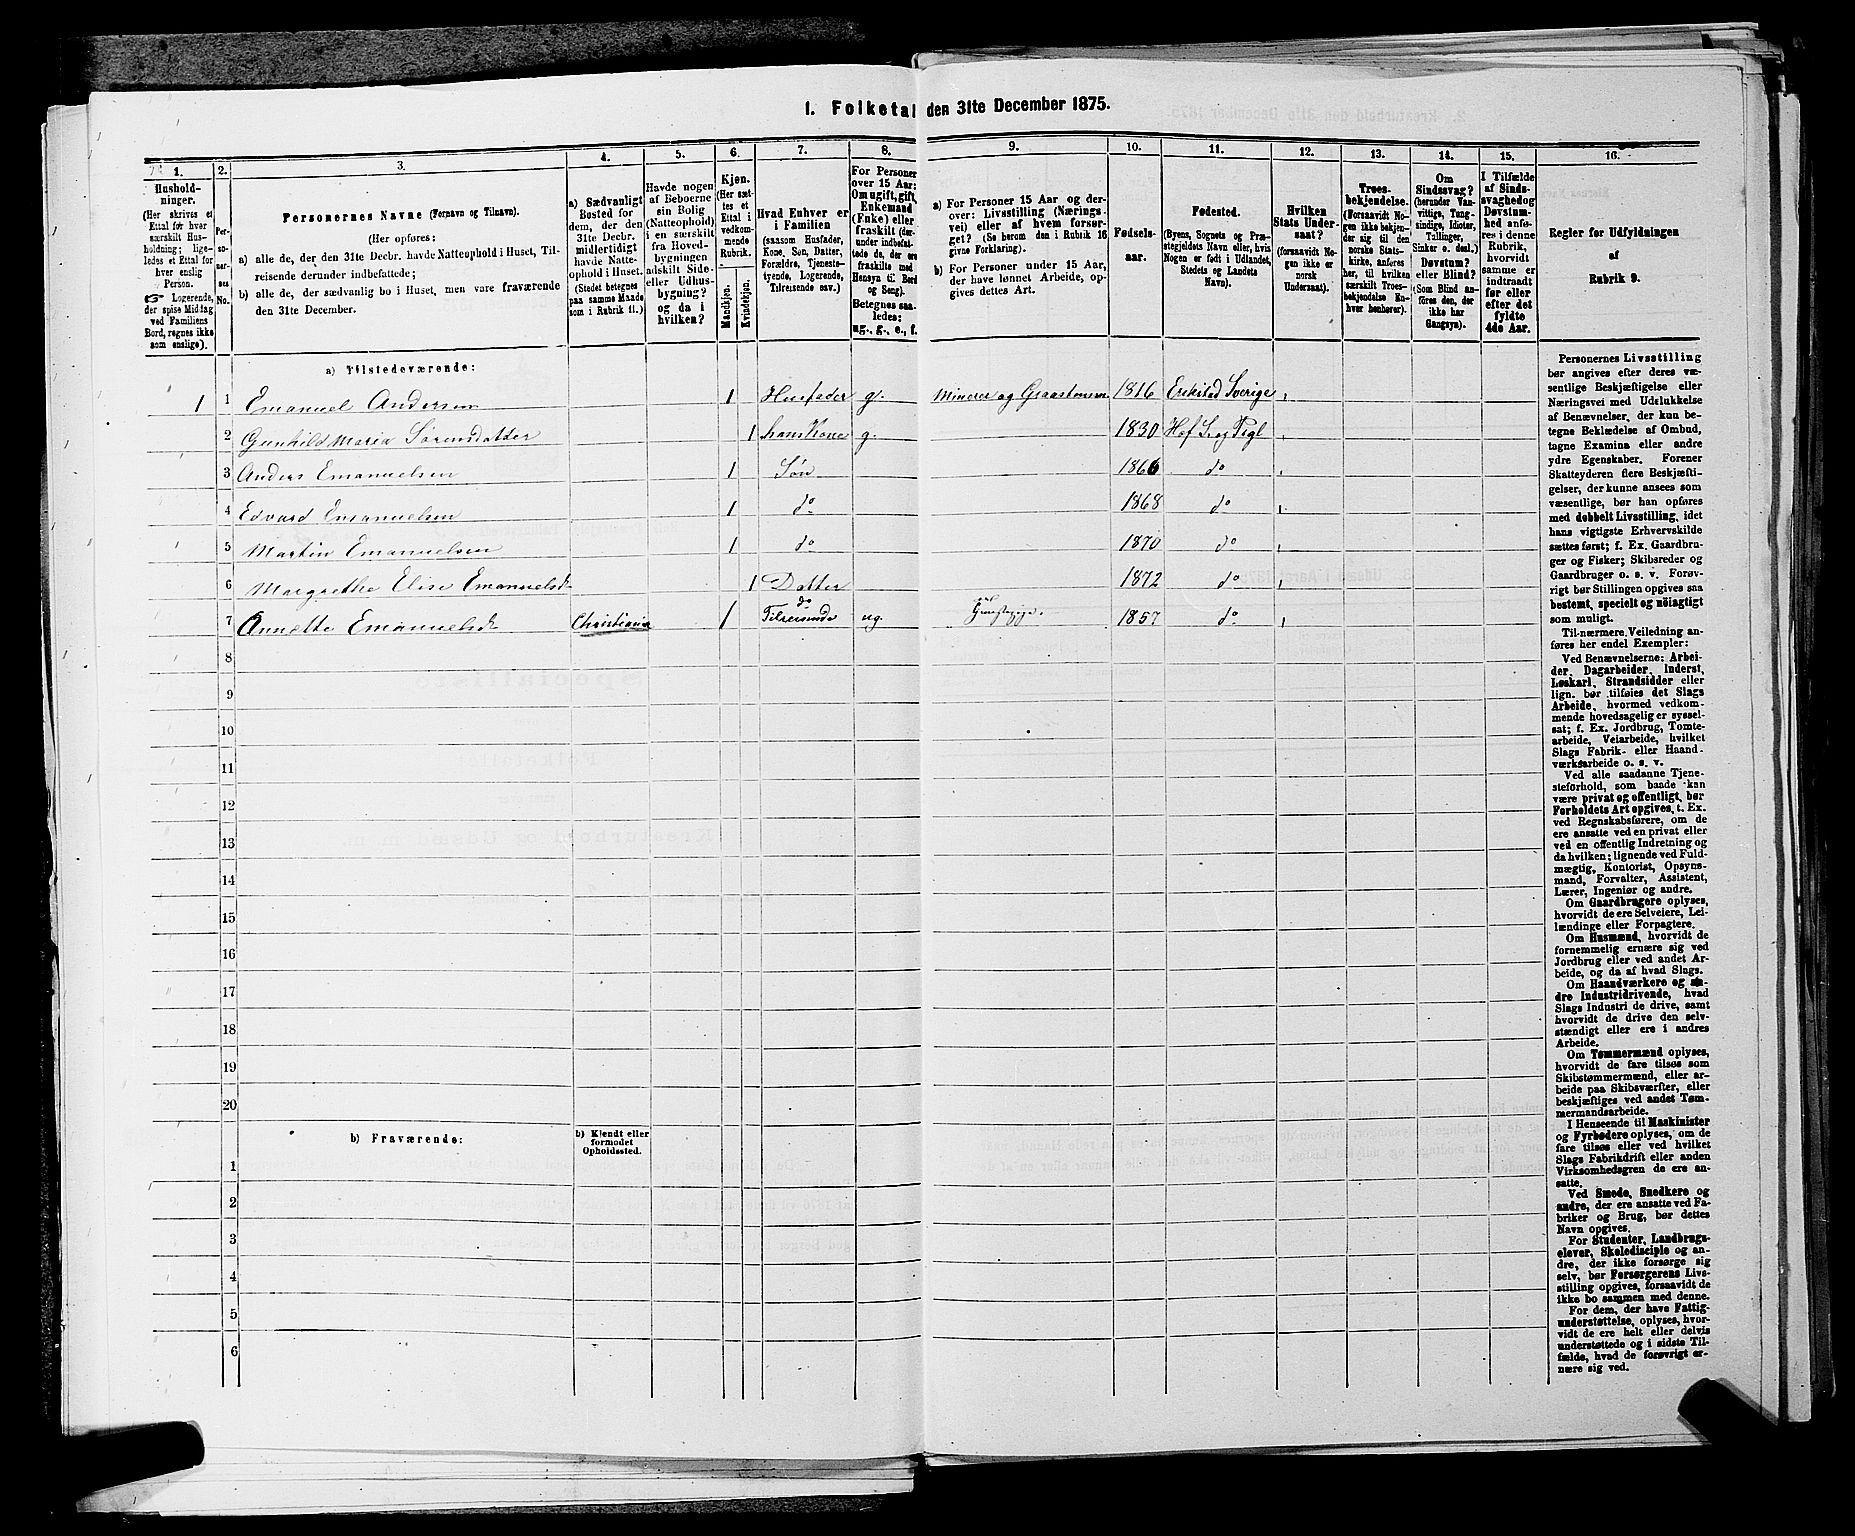 1. Folketal den 31te December 1875.
1.
2.
3.
4.
5.
6.
7.
8.
9.
10.
11.
12.
13.
14.
15.
16.
Husholdninger.
(Her skrives et Ettal for hver særskilt Husholdning; ligeledes et Ettal for hver enslig Person.
☞ Logerende, der spise Middag ved Familiens Bord, regnes ikke som enslige).
Personernes No.
Personernes Navne (Fornavn og Tilnavn).
(Her opføres:
a) alle de, der den 31te Decbr. havde Natteophold i Huset, Tilreisende derunder indbefattede;
b) alle de, der sædvanlig bo i Huset, men vare fraværende den 31te December.
a) Sædvanligt Bosted for dem, der den 31te Decbr. midlertidigt havde Natteophold i Huset. (Stedet betegnes paa samme Maade som i Rubrik 11.)
Havde nogen af Beboerne sin Bolig (Natteophold) i en særskilt fra Hovedbygningen adskilt Side- eller Udhusbygning? og da i hvilken?
Kjøn.
(Her sættes et Ettal i vedkommende Rubrik.
Mandkjøn.
Kvindekjøn.
Hvad Enhver er i Familien
(saasom Husfader, Kone, Søn, Datter, Forældre, Tjenestetyende, Logerende, Tilreisende osv.)
For Personer over 15 Aar: Om ugift, gift, Enkemand (Enke) eller fraskilt (derunder indbefattede de, der ere fraskilte med Hensyn til Bord og Seng).
Betegnes saaledes: ug., g., e., f.
a) For Personer 15 Aar og derover: Livsstilling (Næringsvei) eller af hvem forsørget? (Se herom den i Rubrik 16 givne Forklaring).
b) For Personer under 15 Aar, der have lønnet Arbeide, opgives dettes Art.
Fødselsaar.
Fødested.
(Byens, Sognets og Præstegjeldets Navn eller, hvis Nogen er født i Udlandet, Stedets og Landets Navn).
Hvilken Stats Undersaat?
(forsaavidt Nogen ikke er norsk Undersaat).
Troesbekjendelse.
(Forsaavidt Nogen ikke bekjender sig til den norske Statskirke, anføres her, til hvilken særskilt Troesbekjendelse Enhver henhører).
Om Sindssvag? (herunder Vanvittige, Tungsindige, Idioter, Tullinger, Sinker o. desl.)
Døvstum? eller Blind?
(Som Blind anføres den, der ikke har Gangsyn).
I Tilfælde af Sindssvaghed og Døvstumhed anføres i denne Rubrik, hvorvidt samme er indtraadt før eller efter det fyldte 4de Aar.
Regler for Udfyldningen
af
Rubrik 9.
a) Tilstedeværende:
1 1 Emanuel Andersen 1 Husfader g. Minerer og Graastensm. 1816 Erikstad Sverige
2 Gunhild Maria Sørensdatter 1 hans Kone g. 1830 Hof S. og Pgl
3 Anders Emanuelsen 1 Søn 1866 do
4 Edvard Emanuelsen 1 do 1868 do
5 Martin Emanuelsen 1 do 1870 do
6 Margrethe Elise Emanuelsd. 1 Datter 1872 do
7 Annette Emanuelsd. Christiania 1 do Tilreisende ug. 1857 do
8
9
10
11
12
13
14
15
16
17
18
19
20
b) Fraværende:
b) Kjendt eller formodet Opholdssted.
1
2
3
4
5
6
Personernes Livsstilling
bør angives efter deres væ-
sentlige Beskjæftigelse eller
Næringsvei med Udslukkelse
af Benævnelser, der kun be-
tegne Beklædelse af Ombud,
tagne Examina eller andre
ydre Egenskaber. Forener
Skatteyderen flere Beskjæfti-
gelser, der kunne ansees som
væsentlige, bør han opføres
med dobbelt Livsstilling, idet
hans vigtigste Erhvervskilde
sættes først; f. Ex. Gaardbru-
ger og Fisker; Skibsreder og
Gaardbruger o. s. v. Forøv-
rigt bør Stillingen opgives saa
bestemt, specielt og nøiagtigt
som muligt.
Til nærmere Veiledning an-
føres her endel Exempler:
Ved Benævnelserne: Arbei-
der, Dagarbeider, Inderst,
Løskarl, Strandsidder eller
lign. bør tilføies det Slags
Arbeide, hvormed vedkom-
mende hovedsagelig er syssel-
sat; f. Ex. Jordbrug, Tomte-
arbeide, Veiarbeide, hvilket
Slags Fabrik- eller Haand-
værksarbeide o. s. v.
Ved alle saadanne Tjene-
steforhold, som baade kan
være privat og offentligt, bør
Forholdets Art opgives, t. Ex.
ved Regnskabsførere, om de
ere ansatte ved en privat eller
ved en offentlig Indretning og
da hvilken; lignende ved Fuld-
mægtig, Kontorist, Opsyns-
mand, Forvalter, Assistent,
Lærer, Ingeniør og andre.
Om Gaardbrugere oplyses,
hvorvidt de ere Selveiere, Lei-
lændinge eller Forpagtere.
Om Husmænd, hvorvidt de
fornemmelig ernære sig ved
Jordbrug eller ved andet Ar-
beide, og da af hvad Slags.
Om Haandværkere og an-
dre Industridrivende, hvad
Slags Industri de drive, samt
hvorvidt de drive den selv-
stændigt eller ere i andres
Arbeide.
Om Tømmermænd oplyses,
hvorvidt de fare tilsøs som
Skibstømmermænd, eller ar-
beide paa Skibsværfter, eller
beskjæftiges ved andet Tøm-
mermandsarbeide.
I Henseende til Maskinister
og Fyrbødere oplyses, om de
fare tilsøs eller ved hvilket
Slags Fabrikdrift eller anden
Virksomhedsgren de ere an-
satte.
Ved Smede, Snedkere og
andre, der ere ansatte ved Fa-
briker og Brug, bør dettes
Navn opgives.
For Studenter, Landbrugs-
elever, Skoledisciple og an-
dre, der ikke forsørge sig
selv, bør Forsørgerens Livs-
stilling opgives, forsaavidt de
ikke bo sammen med denne.
For dem, der have Fattig-
understøttelse, oplyses, hvor-
vidt de ere helt eller delvis
understøttede og i sidste Til-
fælde, hvad de forøvrigt er-
nære sig ved.